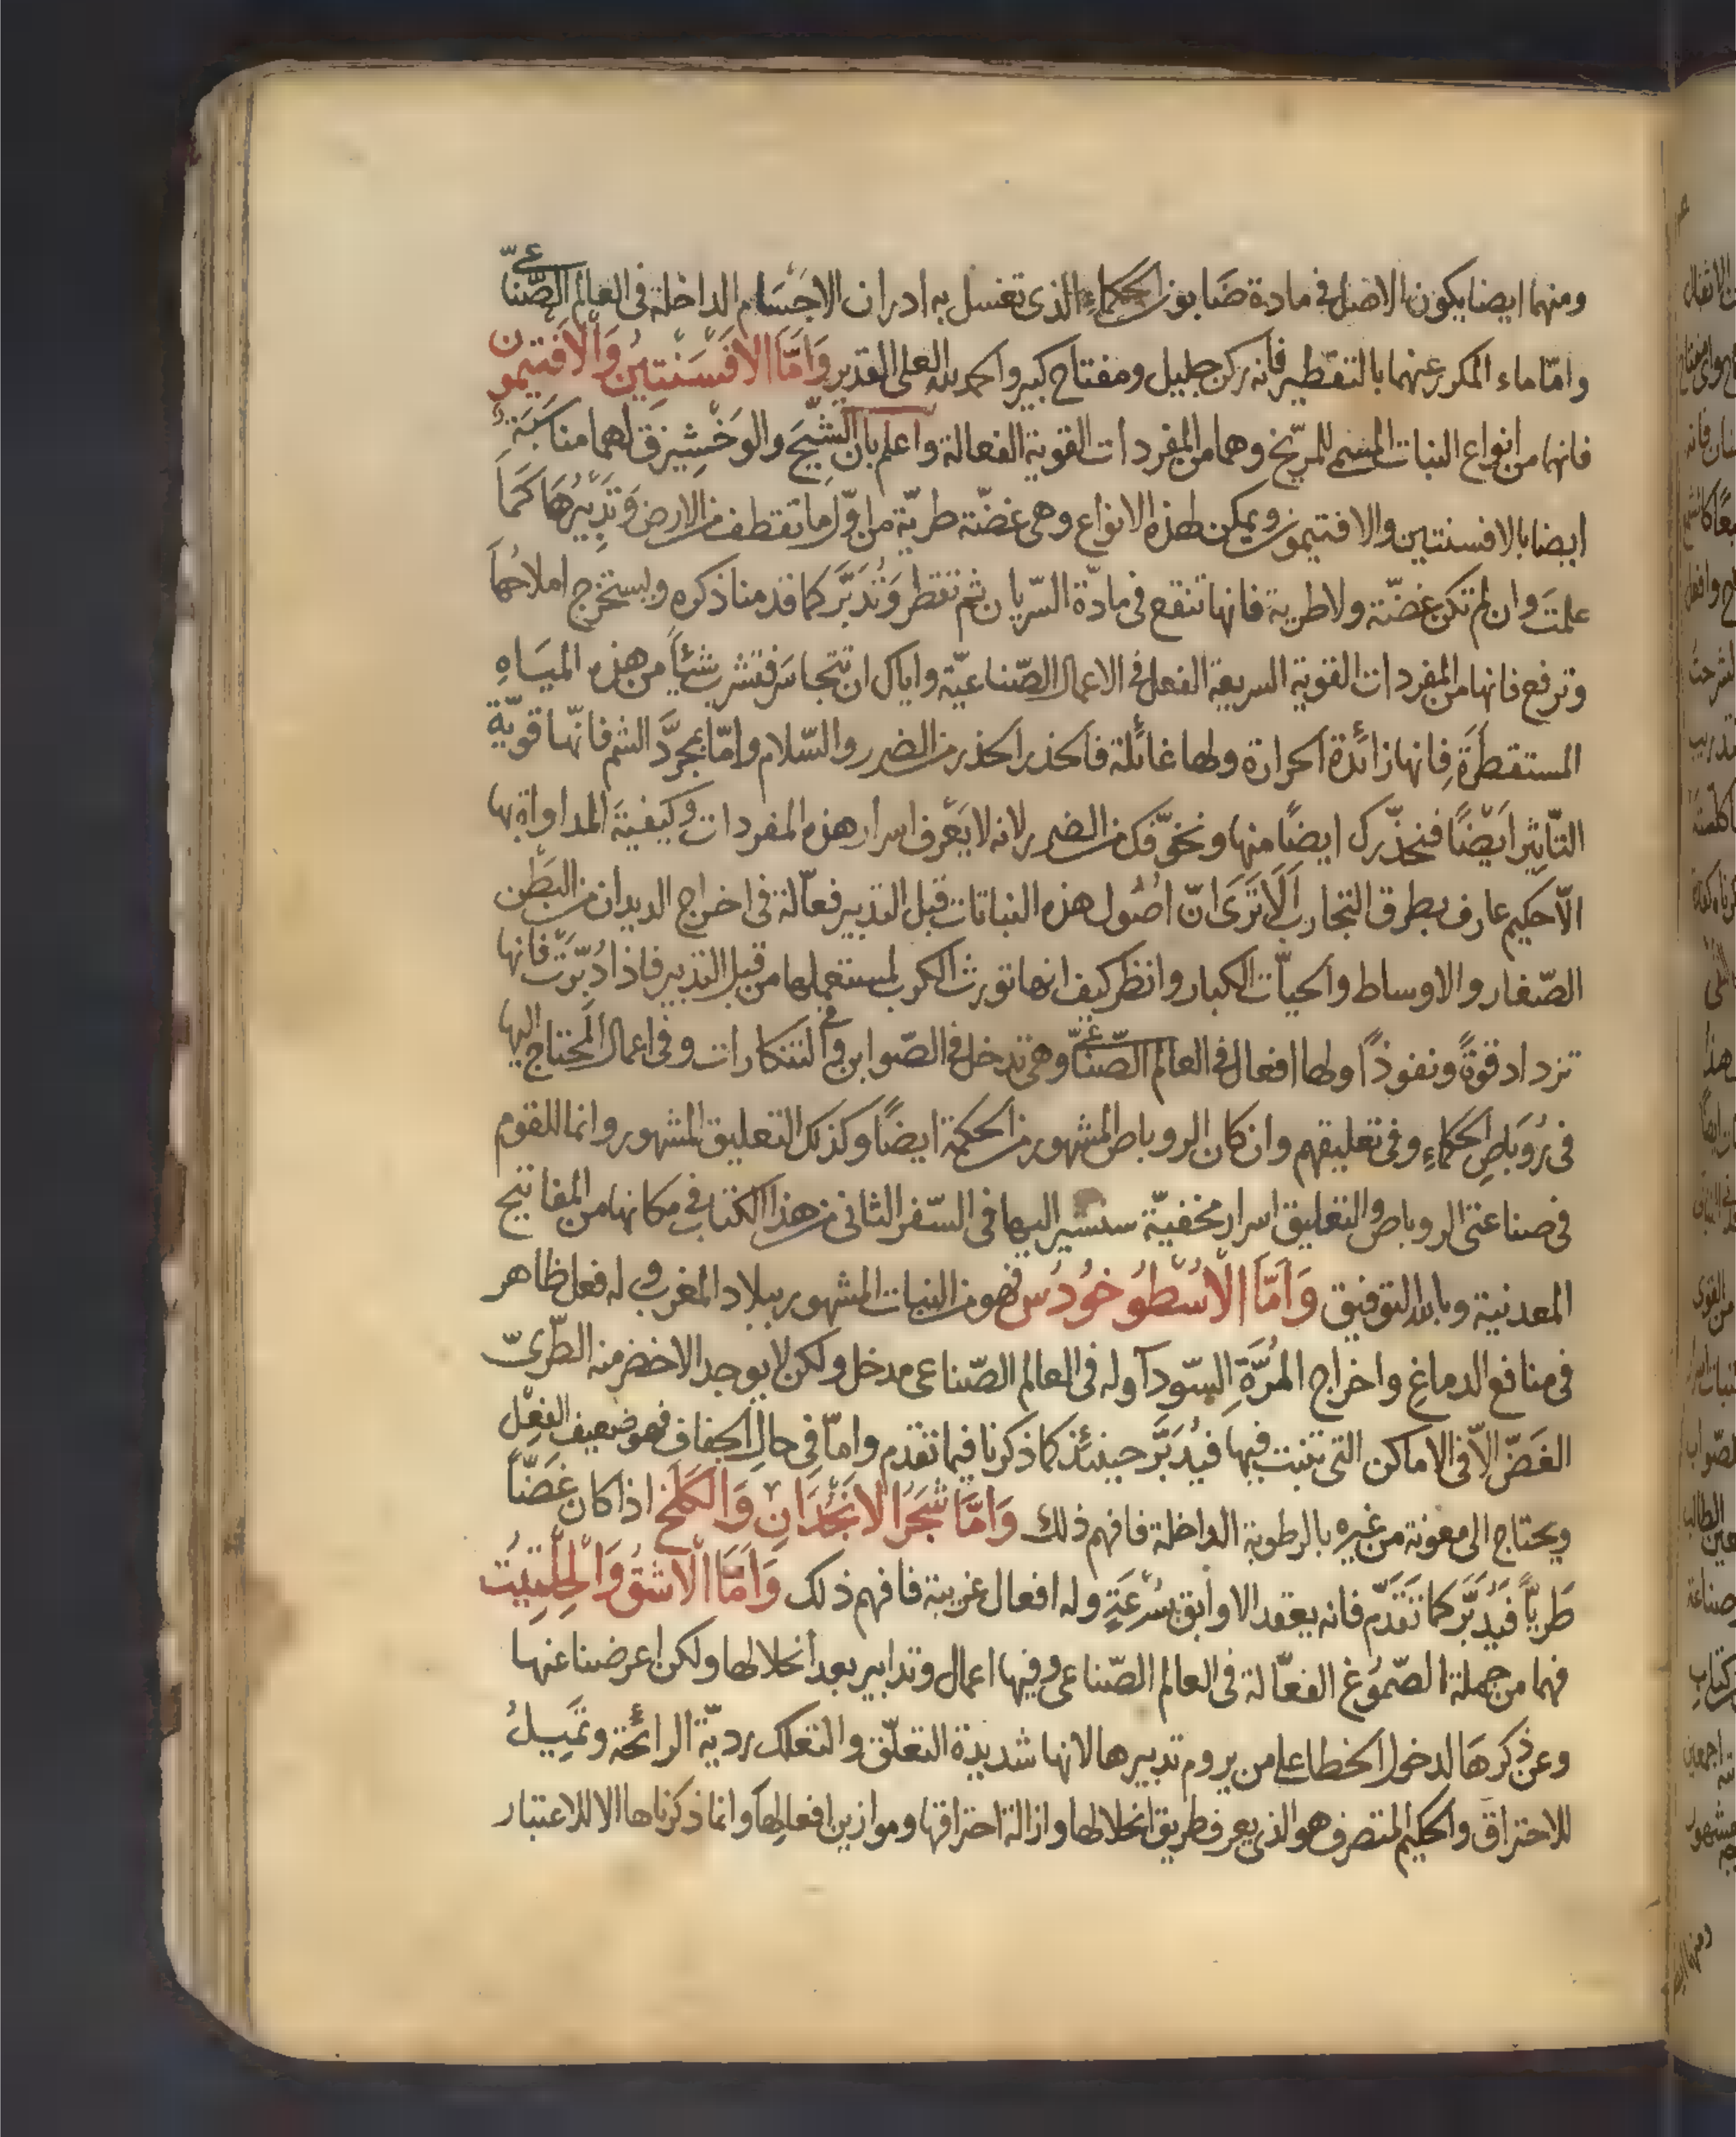 ومنهما ايضا يكون الاصل في مادة صابون الحكماء الذى تغسل به ادران الاجسام الداخلة فى العالم الصّناعىّ
وامّا ماء المكرر عنهما بالتقطير فانه ركن جليل ومفتاح كبير والحمد لله العلى القدير وَاَمَّا الْاَفْسَنْتِين وَالْاَفْتِيمون
فانهما من انواع النبات المسمى للمرّيخ وهما من المفردات القوية الفعالة واعلم بان الشّيحَ والوَخْشِيزق لهما مناسَبَة
ايضا بالافسنتين والافتيمون ويمكن لهذه الانواع وهى غضّة طريّة من اوّل ما تقطف من الارض وَتدْبيرُهَا كَمَا
علمتَ وان لم تكن غضّة ولا طرية فانها تنقع فى مادّة السّريان ثم تقطر وَتُدَبَّر كما قدمنا ذكره ويستخرج املاحُها
وترفع فانها من المفردات القوية السريعة الفعل فى الاعمال الصّناعيّة واياك ان تتجاسَر فتشرب شئًا من هذه الميَاهِ
المستقطَرَةِ فانها زائدة الحرارة ولها غائلة فالحذر الحذر من الضرر والسّلام وامّا بمجرَّد الشم فانّها قويّة
التّاثير ايَضًا فنحذّرك ايضًا منها ونخوّفك من الضرر لانه لا يَعْرف اسرار هذه المفردات وكيفية المداواة بها
الّا حكيم عارف بطرق التجارب اَلَا تَرَى انّ اصُول هذه النباتات قبل التدبير فعّالة فى اخراج الديدان من البَطْن
الصّغار والاوساط والحيّات الكبار وانظر كيف انها تورث الكرب لمستعملها من قبل التدبير فاذا دُبّرَتْ فانها
تزداد قوةً ونفوذًا ولها افعال فى العالم الصّناعىّ وهى تدخل فى الصّوابن وفى التنكارات وفى اعمال المحتاج اليها
فى رُوَبَاصِ الحكماءِ وفى تعليقهم وان كان الروباص المشهور من الحكمة ايضًا وكذلك التعليق المشهور وانما للقوم
فى صناعتى الروباص والتعليق اسرار مخفيّة سنشير اليها فى السّفر الثانى من هذا الكتاب فى مكانها من المفاتيح
المعدنية وبالله التوفيق وَاَمَّا الْاُسْطُوخُودُس فهو من النبات المشهور ببلاد المغرب وله فعل ظاهر
فى منافع الدماغِ واخراج المُرَّةِ السّودآ وله فى العالم الصّناعى مدخل ولكن لا يوجد الاخضر منه الطّرىّ
الغَضّ الاّ فى الاماكن التى تنبت فيها فيُدَبَّر حينئذ كما ذكرنا فيما تقدم وامّا فى حال الجفاف فهو ضعيف الفِعْل
ويحتاج الى معونة من غيرِه بالرطوبة الداخلة فافهم ذلك وَاَمَّا شَجَرُ الْانجُدَانِ وَالكَلَخ اذا كان غَضّاً
طَريّاً فَيُدَبَّر كما تَقَدّم فانه يعقد الاوابق بسُرْعَةٍ وله افعال غريبة فافهم ذلك وَاَمَّا الْاشقُ وَالْحِلْتِيت
فهما من جملة الصّموُغ الفعّالة فى العالم الصّناعى وفيها اعمال وتدابير بعد انحلالها ولكن اعرضنا عنها
وعن ذكرهَا لدخول الخطا على من يروم تدبيرها لانها شديدة التعلّق والتعلك رديّة الرائحة وتَميلُ
للاحتراق والحكيم المتصرف هو الذى يعرف طريق انحلالها وازالة احتراقها وموازين افعالِهَا وانما ذكرناها الا للاعتبار